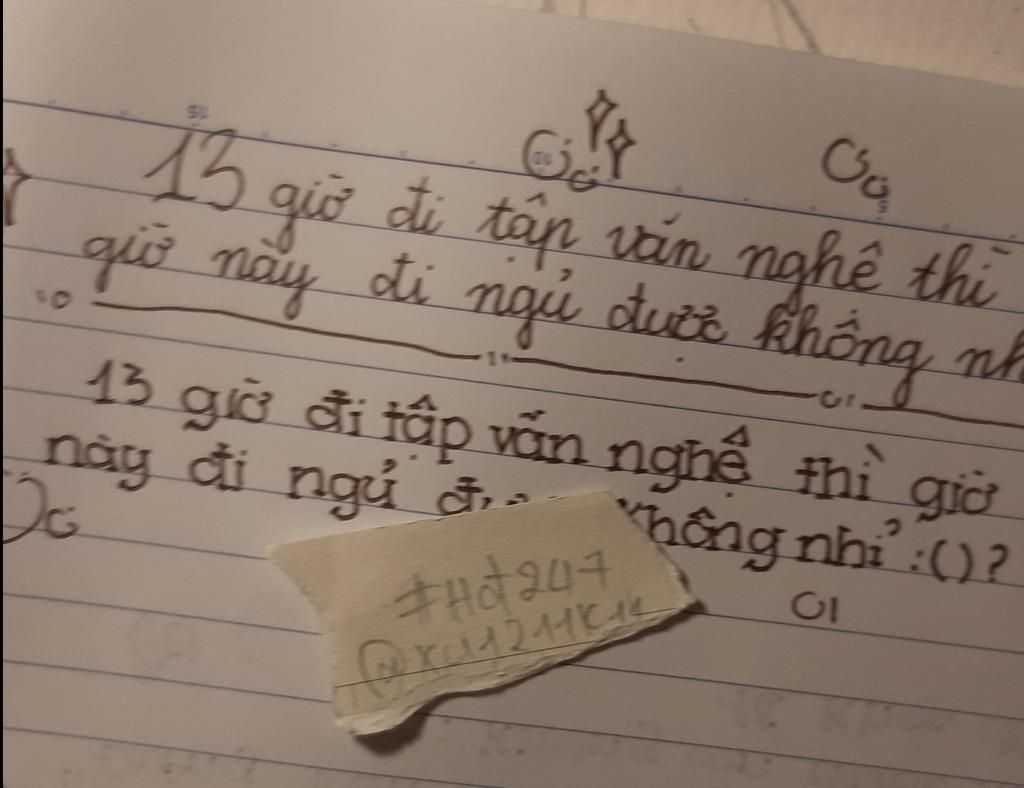 13 giờ đi tập văn nghệ thì
giờ này đi ngủ được không
13 giờ đi tập văn nghệ thì giờ
này đi ngủ không nhỉ :()?
#Hd247